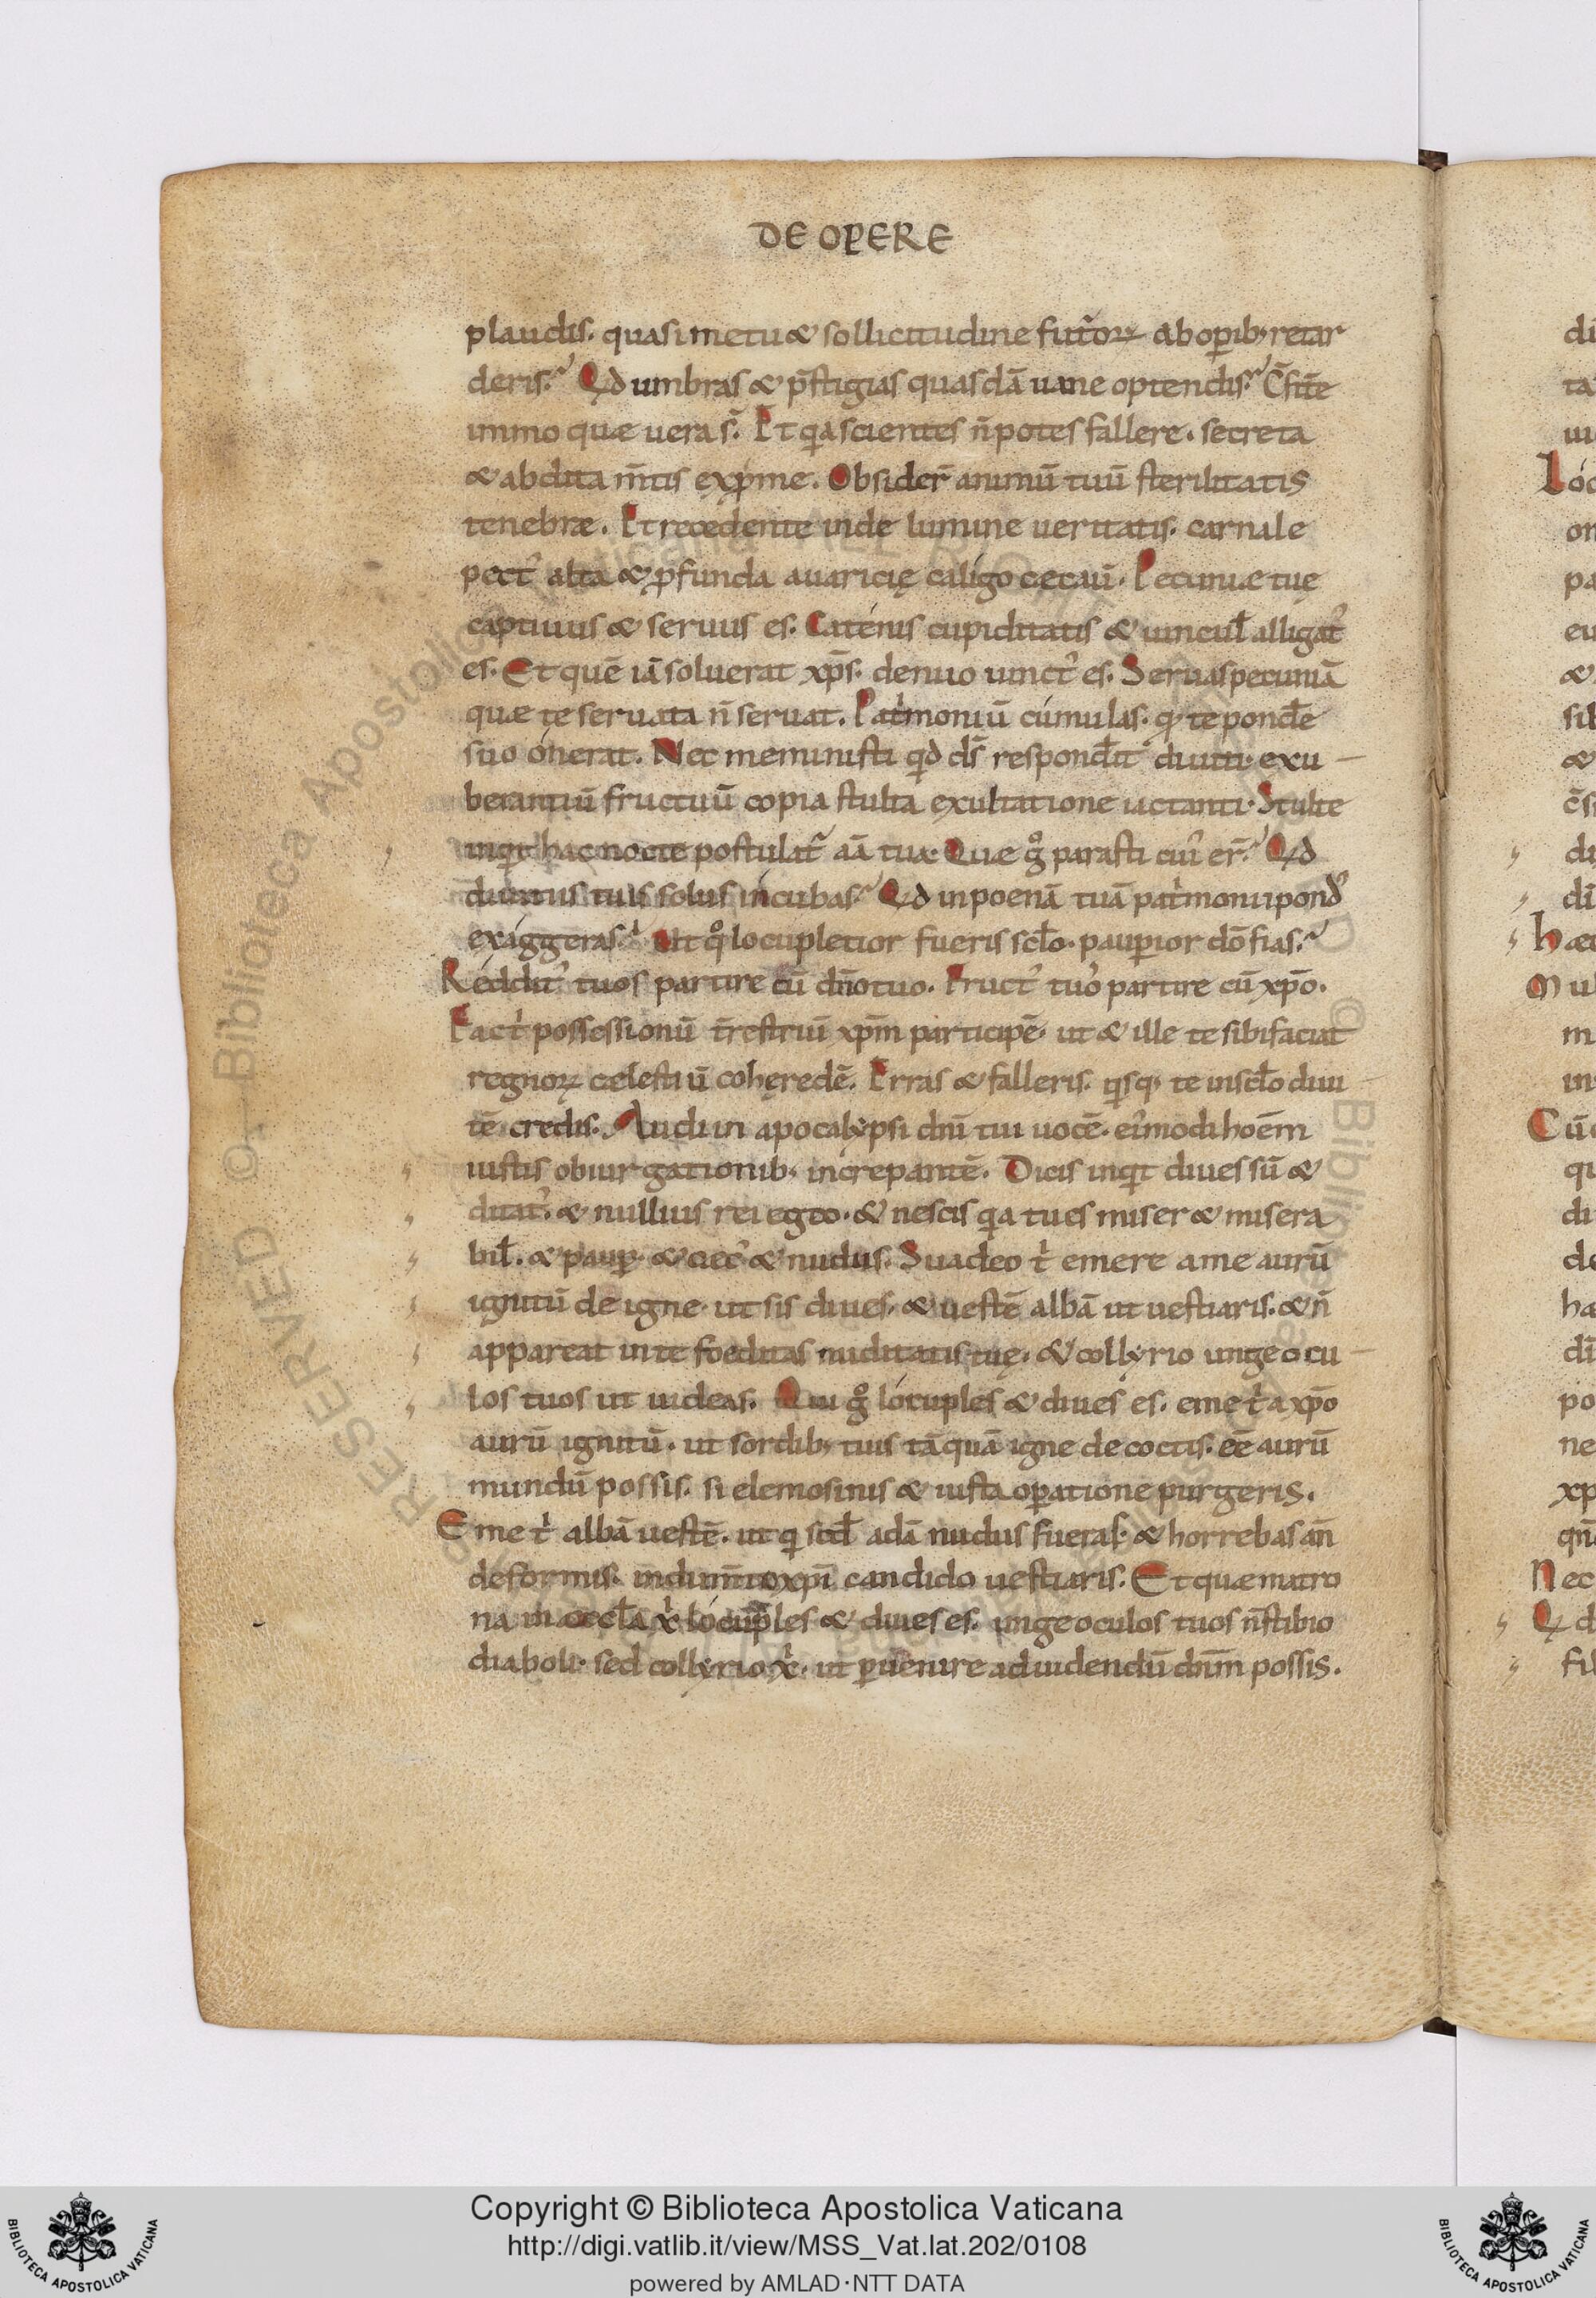 DE OPERE
plaudis. quasi metu & sollicitudine fut̄oꝝ ab oꝑib; retar
deris? Qd umbras & p̄stigias quasdā uane optendis? C̄fitēe
immo quæ uera s̄. Et qa scientes n̄ potes fallere. secreta
& abdita m̄tis exprime. Obsider̄ animū tuū sterilitatis
tenebræ. Et recedente inde lumine ueritatis. carnale
pect' alta & ꝓfunda auaricię caligo cęcaū. Pecuniæ tuę
captiuus & seruus es. Catenis cupiditatis & uincul̄ alligat'
es. Et quē iā soluerat xp̄s. denuo uinct' es. Seruas pecuniā
quæ te seruata n̄ seruat. Patⁱmoniū cumulas. qđ te pondēe
suo onerat. Nec meministi qid ds̄ respondīt diuiti. exu
berantiū fructuū copia stulta exultatione iactanti. Stulte
inqit hac nocte postulat̄ aīa tua. Quæ gº parasti cui' er̄? Qd
diuitiis tuis solus incubas? Qd in poenā tuā patⁱmonii pond'
exaggeras? Ut qº locupletior fueris sc̄lo. pauꝑior dō fias?
Reddit' tuos partire cū dn̄o tuo. Fruct' tuo' partire cū xp̄o.
Fac tⁱ possessionū t̄restriū xp̄m participē. ut & ille te sibi faciat
regnoꝝ cælestiū cohęredē. Erras & falleris. qisq; te in sc̄lo diui
tē credis. Audi in apocalypsi dn̄i tui uocē. ei'modi hoēm
iustis obiurgationib; increpantē. Dicis inqit diues sū &
ditat'. & nullius rei egeo. & nescis qa tu es miser & misera
bil̄. & pauꝑ. & cæc' & nudus. Suadeo tⁱ emere a me aurū
ignitū de igne. ut sis diues. & uestē albā ut uestiaris. & n̄
appareat in te foeditas nuditatis tuę. & collyrio unge ocu
los tuos ut uideas. Qui gº locuples & diues es. eme tⁱ a xp̄o
aurū ignitū. ut sordib; tuis tāquā igne decoctis. eē aurū
mundū possis. si elemosinis & iusta oꝑatione purgeris.
Eme tⁱ albā uestē. ut qi scd̄ adā nudus fueras. & horrebas an̄
deformis. indum̄to xp̄i candido uestiaris. Et quæ matro
na in æccl̄a xⁱ locuples & diues es. unge oculos tuos n̄ stibio
diaboli. sed collyrio xⁱ. ut ꝑuenire ad uidendū dn̄m possis.
Copyright © Biblioteca Apostolica Vaticana
http://digi.vatlib.it/view/MSS_Vat.lat.202/0108
powered by AMLAD·NTT DATA
BIBLIOTECA APOSTOLICA VATICANA
BIBLIOTECA APOSTOLICA VATICANA